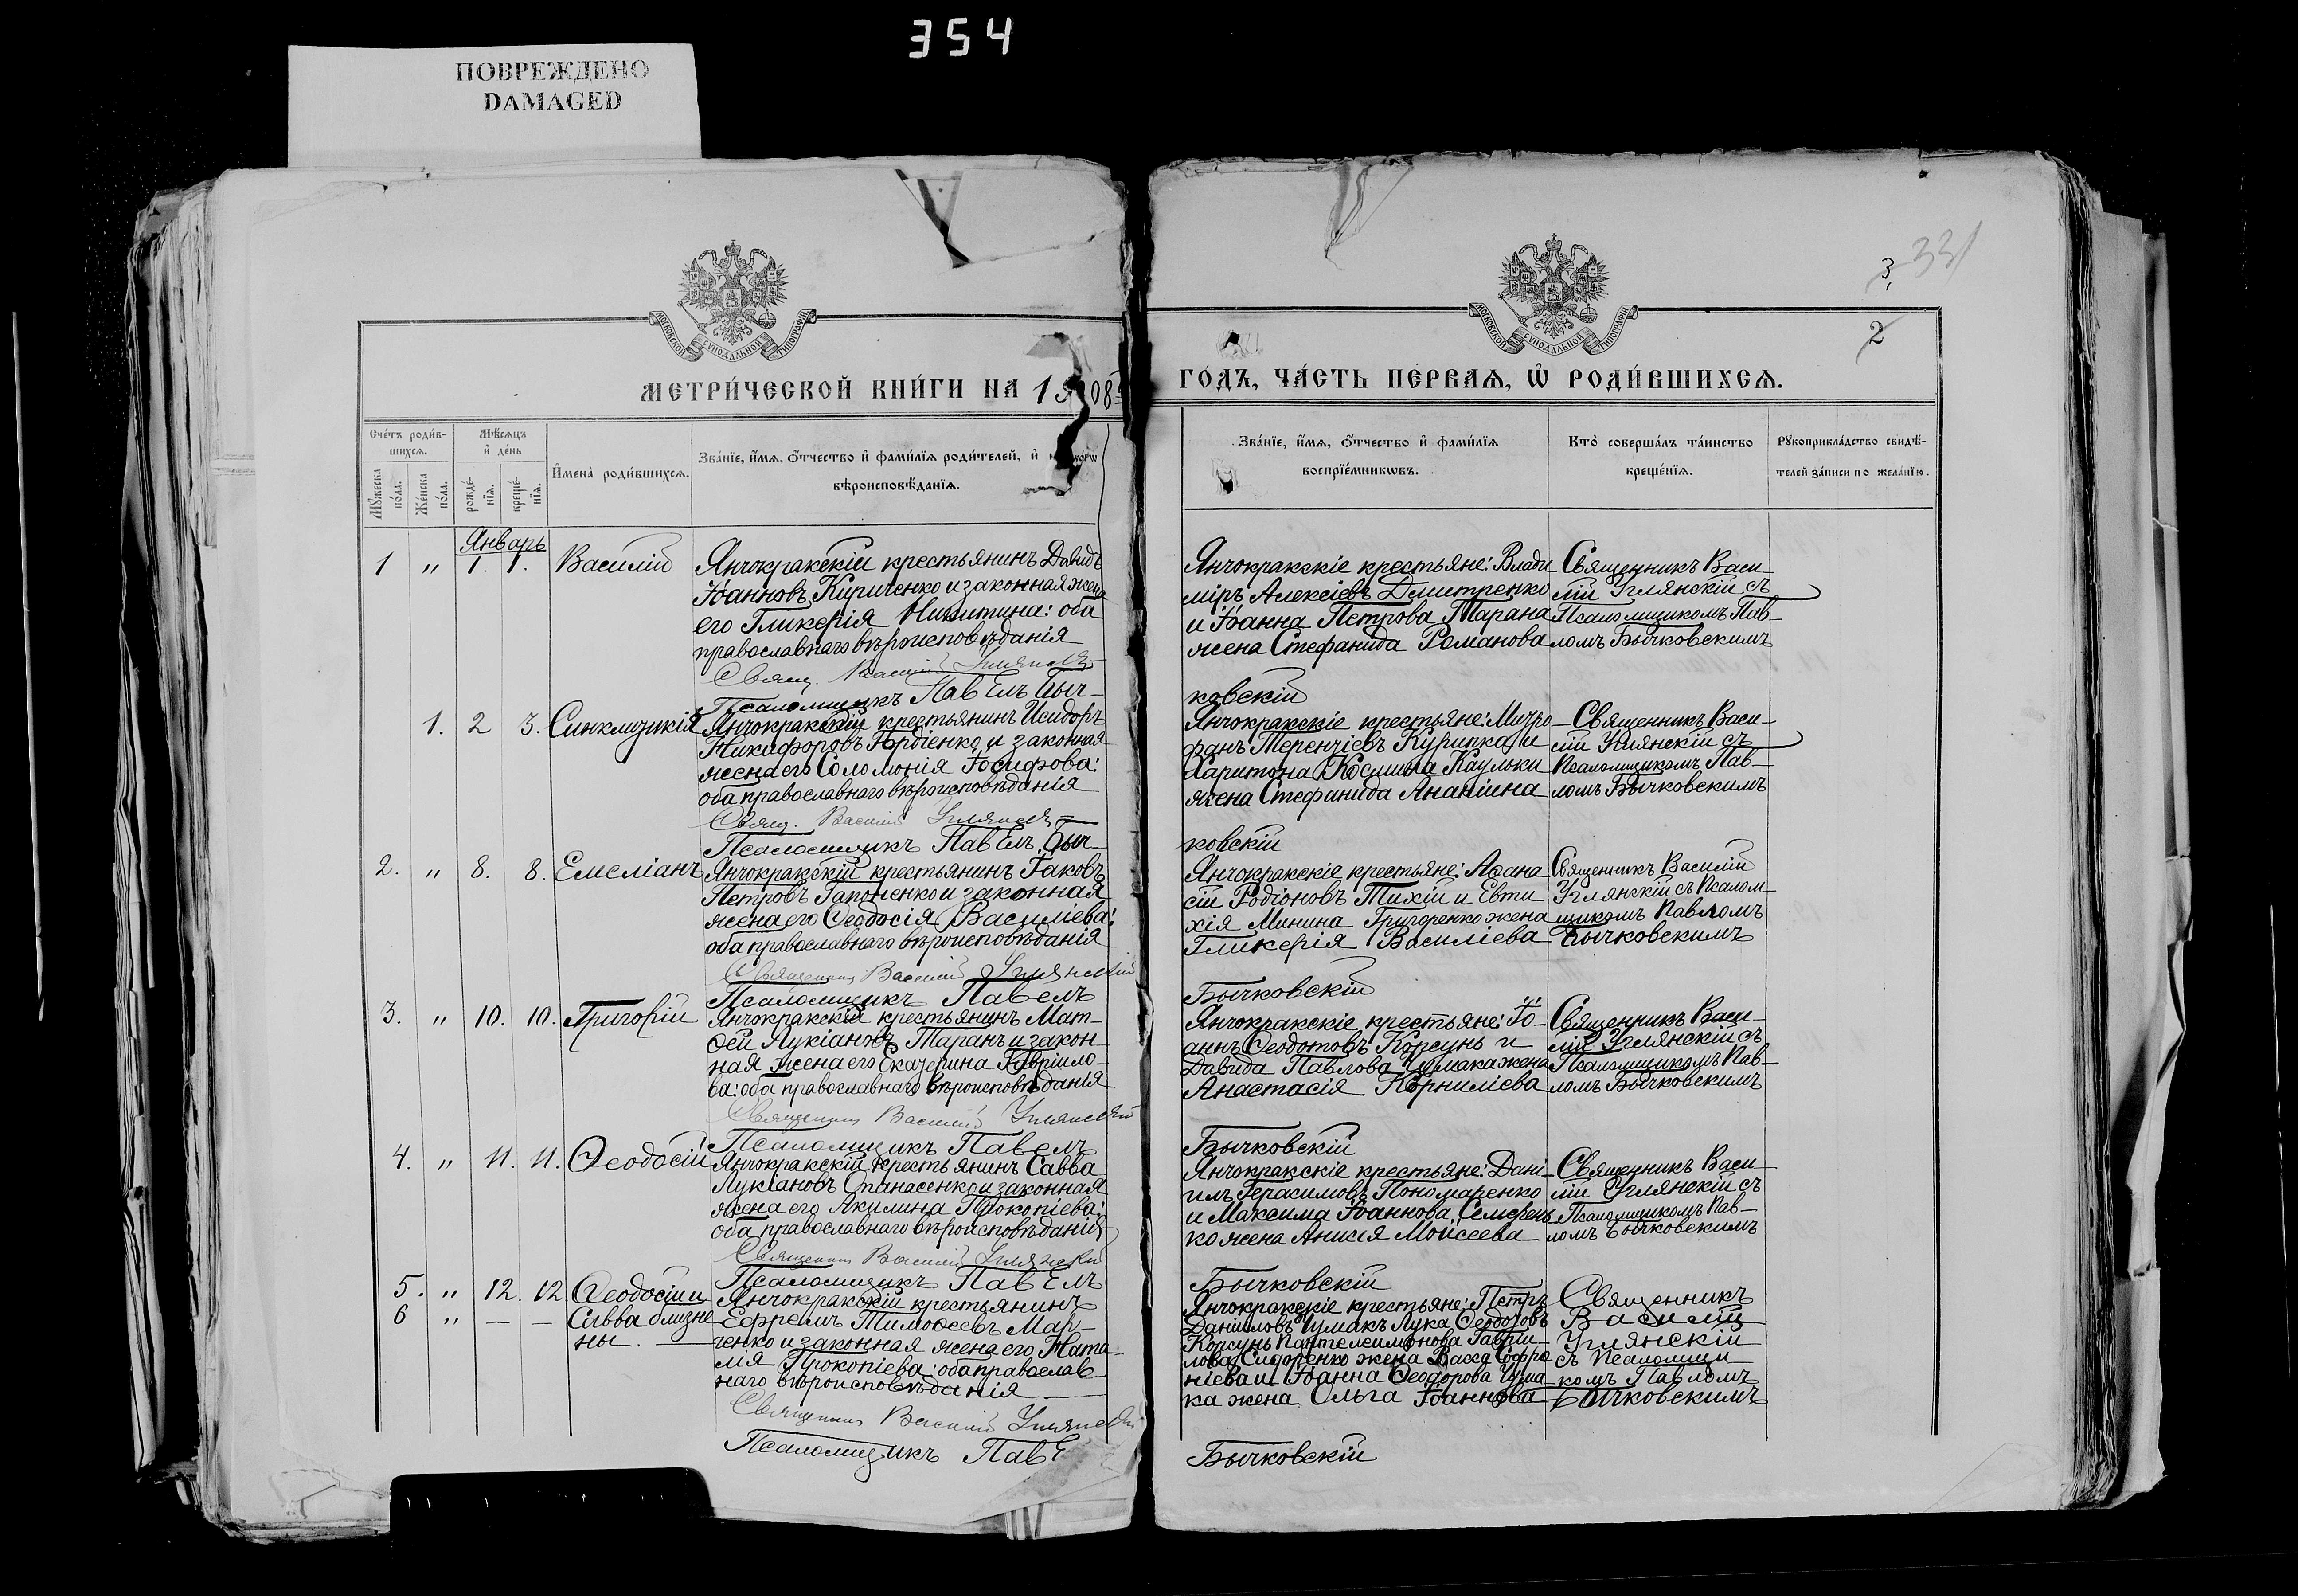 354
ПОВРЕЖДЕНО
DAMAGED
3, 331
2
МОСКОВСКОЙ СѴНОДАЛЬНОЙ ТИПОГРАФІИ
МОСКОВСКОЙ СѴНОДАЛЬНОЙ ТИПОГРАФІИ
МЕТРИ́ЧЕСКОЙ КНИ́ГИ НА 1908
ГО́ДЪ, ЧА́СТЬ ПЕ́РВАѦ, Ѡ҆ РОДИ́ВШИХСѦ.
Сче́тъ роди́в-
шихсѧ.
Мꙋ́жеска по́ла.
Же́нска по́ла.
Мѣ́сѧцъ
и҆ де́нь
рожде́-
нїѧ.
креще́-
нїѧ.
И҆мена̀ роди́вшихсѧ.
Зва́нїе, и҆́мѧ, ѻ҆́тчество и҆ фами́лїѧ роди́телей, и҆
вѣроисповѣ́данїѧ.
Зва́нїе, и҆́мѧ, ѻ҆́тчество и҆ фами́лїѧ
воспрїе́мникѡвъ.
Кто̀ соверша́лъ та́инство
креще́нїѧ.
Рꙋкоприкла́дство свидѣ́-
телей за́писи по жела́нїю.
Январь
1 " 1. 1. Василій
Янчокракскій крестьянинъ Давидъ
Іоанновъ Кириченко и законная жена
его Гликерія Никитина: оба
православнаго вѣроисповѣданія
Свящ. Василій Углянскій
Псаломщикъ Павелъ Быч-
Янчокракскіе крестьяне: Влади
міръ Алексіевъ Дмитренко
и Іоанна Петрова Тарана
жена Стефанида Романова
ковскій
Священникъ Васи-
лій Углянскій съ
Псаломщикомъ Пав-
ломъ Бычковскимъ
1. 2 3. Синклитикія
Янчокракскій крестьянинъ Исидоръ
Никифоровъ Гордіенко и законная
жена его Соломонія Іосифова:
оба православнаго вѣроисповѣданія
Свящ. Василій Углянскій
Псаломщикъ Павелъ Быч-
Янчокракские крестьяне: Митро
фанъ Терентіевъ Курипка и
Харитона Космина Каульки
жена Стефанида Ананіина
ковскій
Священникъ Васи-
лій Углянскій съ
Псаломщикомъ Пав-
ломъ Бычковскимъ
2. " 8. 8. Емеліанъ
Янчокракскій крестьянинъ Іаковъ
Петровъ Гапоненко и законная
жена его Ѳеодосія Василіева:
оба православнаго вѣроисповѣданія
Священникъ Василій Углянскій
Псаломщикъ Павелъ
Янчокракскіе крестьяне: Аѳана
сій Родіоновъ Тихій и Евти
хія Минина Григоренко жена
Гликерія Василіева
Бычковскій
Священникъ Василій
Углянскій съ Псалом-
щикомъ Павломъ
Бычковскимъ
3. " 10. 10. Григорій
Янчокракскій крестьянинъ Мат-
ѳей Лукіановъ Таранъ и закон-
ная жена его Екатерина Гавріило-
ва: оба православнаго вѣроисповѣданія
Священникъ Василій Углянскій
Псаломщикъ Павелъ
Янчокракскіе крестьяне: Іо-
аннъ Ѳеодотовъ Корсунь и
Давида Павлова Чумака жена
Анастасія Корниліева
Бычковскій
Священникъ Васи-
лій Углянскій съ
Псаломщикомъ Пав-
ломъ Бычковскимъ
4. " 11. 11. Ѳеодосій
Янчокракскій крестьянинъ Савва
Лукіановъ Опанасенко и законная
жена его Акилина Прокопіева:
оба православнаго вѣроисповѣданія
Священникъ Василій Углянскій
Псаломщикъ Павелъ
Янчокракскіе крестьяне: Дані-
илъ Герасимовъ Пономаренко
и Максима Іоаннова Семерень
ко жена Анисія Моисеева
Бычковскій
Священникъ Васи-
лій Углянскій съ
Псаломщикомъ Пав-
ломъ Бычковскимъ
5. " 12. 12. Ѳеодосій и
6 " — — Савва близне
цы. —
Янчокракскій крестьянинъ
Ефремъ Тимоѳеевъ Мар-
ченко и законная жена его Ната-
лія Прокопіева: оба православ-
наго вѣроисповѣданія
Священникъ Василій Углянскій
Псаломщикъ Паве
Янчокракскіе крестьяне: Петръ
Даніиловъ Чумакъ Лука Ѳеодотовъ
Корсунь Пантелеимонова Гавріи-
лова Сидоренко жена Васса Софро
ніева и Іоанна Ѳеодорова Чума-
ка жена Ольга Іоаннова
Бычковскій
Священникъ
Василій
Углянскій
съ Псаломщи
комъ Павломъ
Бычковскимъ